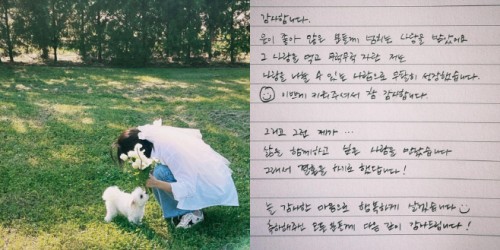 감사합니다.
운이 좋아 많은 분들께 넘치는 사랑을 받았어요
그 사랑을 먹고 무럭무럭 자란 저는
사랑을 나눌 수 있는 사람으로 무럭히 성장했습니다.
이만큼 키워주셔서 참 감사합니다.
그리고 그런 제가 ...
삶을 함께하고 싶은 사람을 만났습니다
그래서 결혼을 하기로 했답니다!
늘 감사한 마음으로 행복하게 살겠습니다
축하해주신 모든 분들께 다시 한번 감사드립니다!